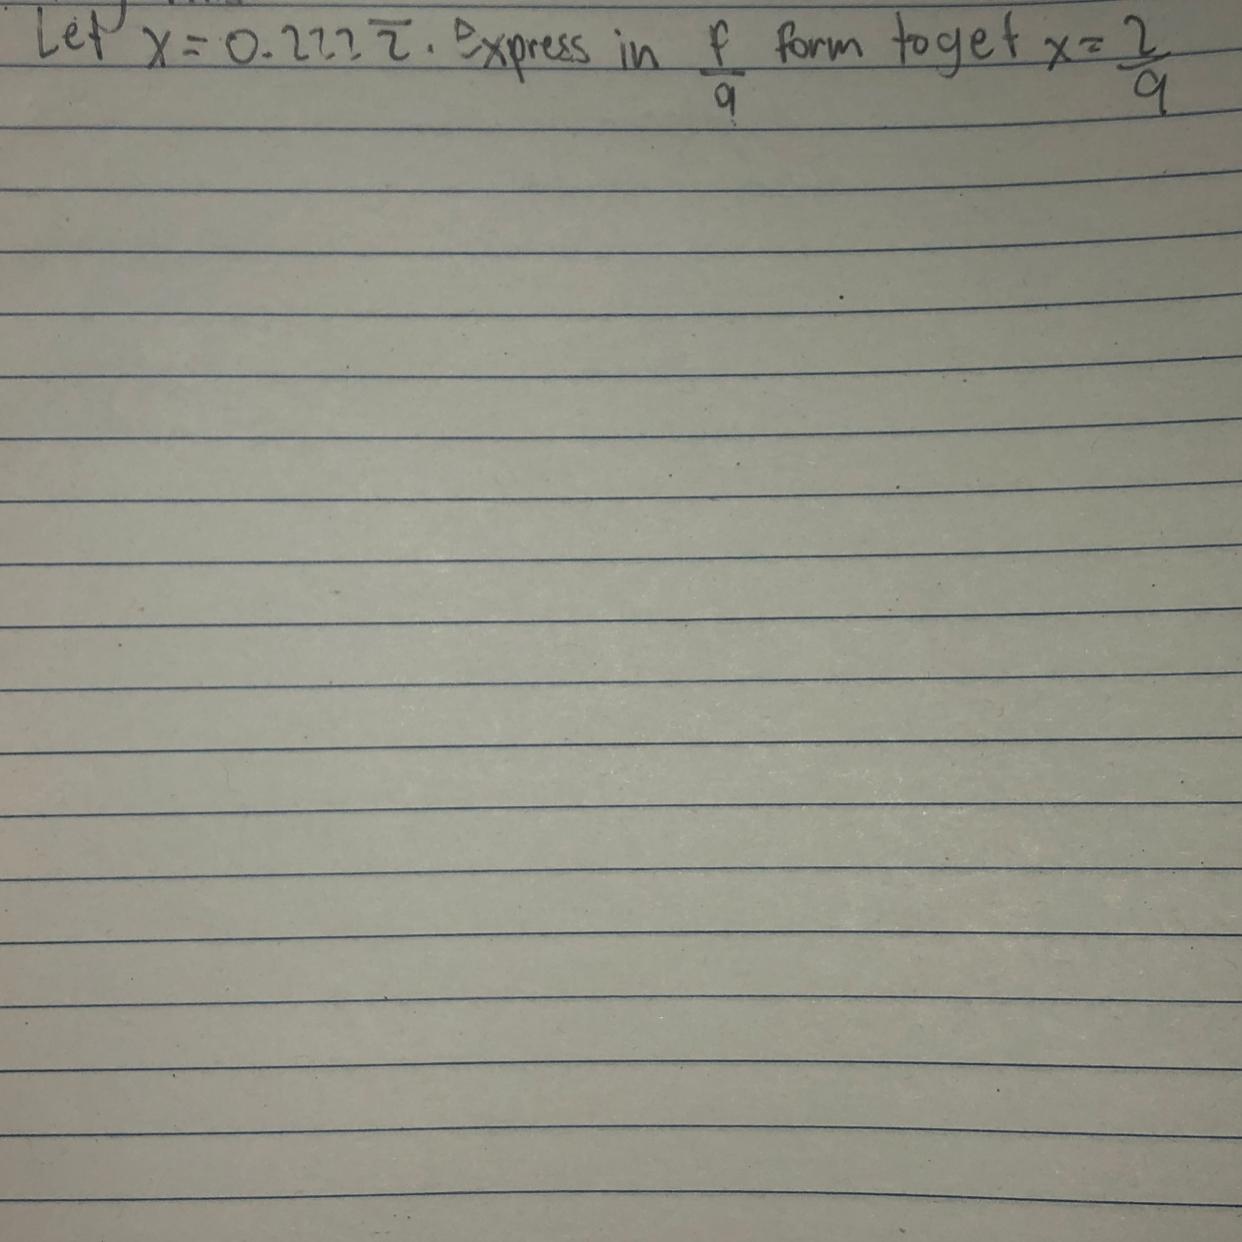 Let x = 0.2222̅. Express in p/q form to get x = 2/9